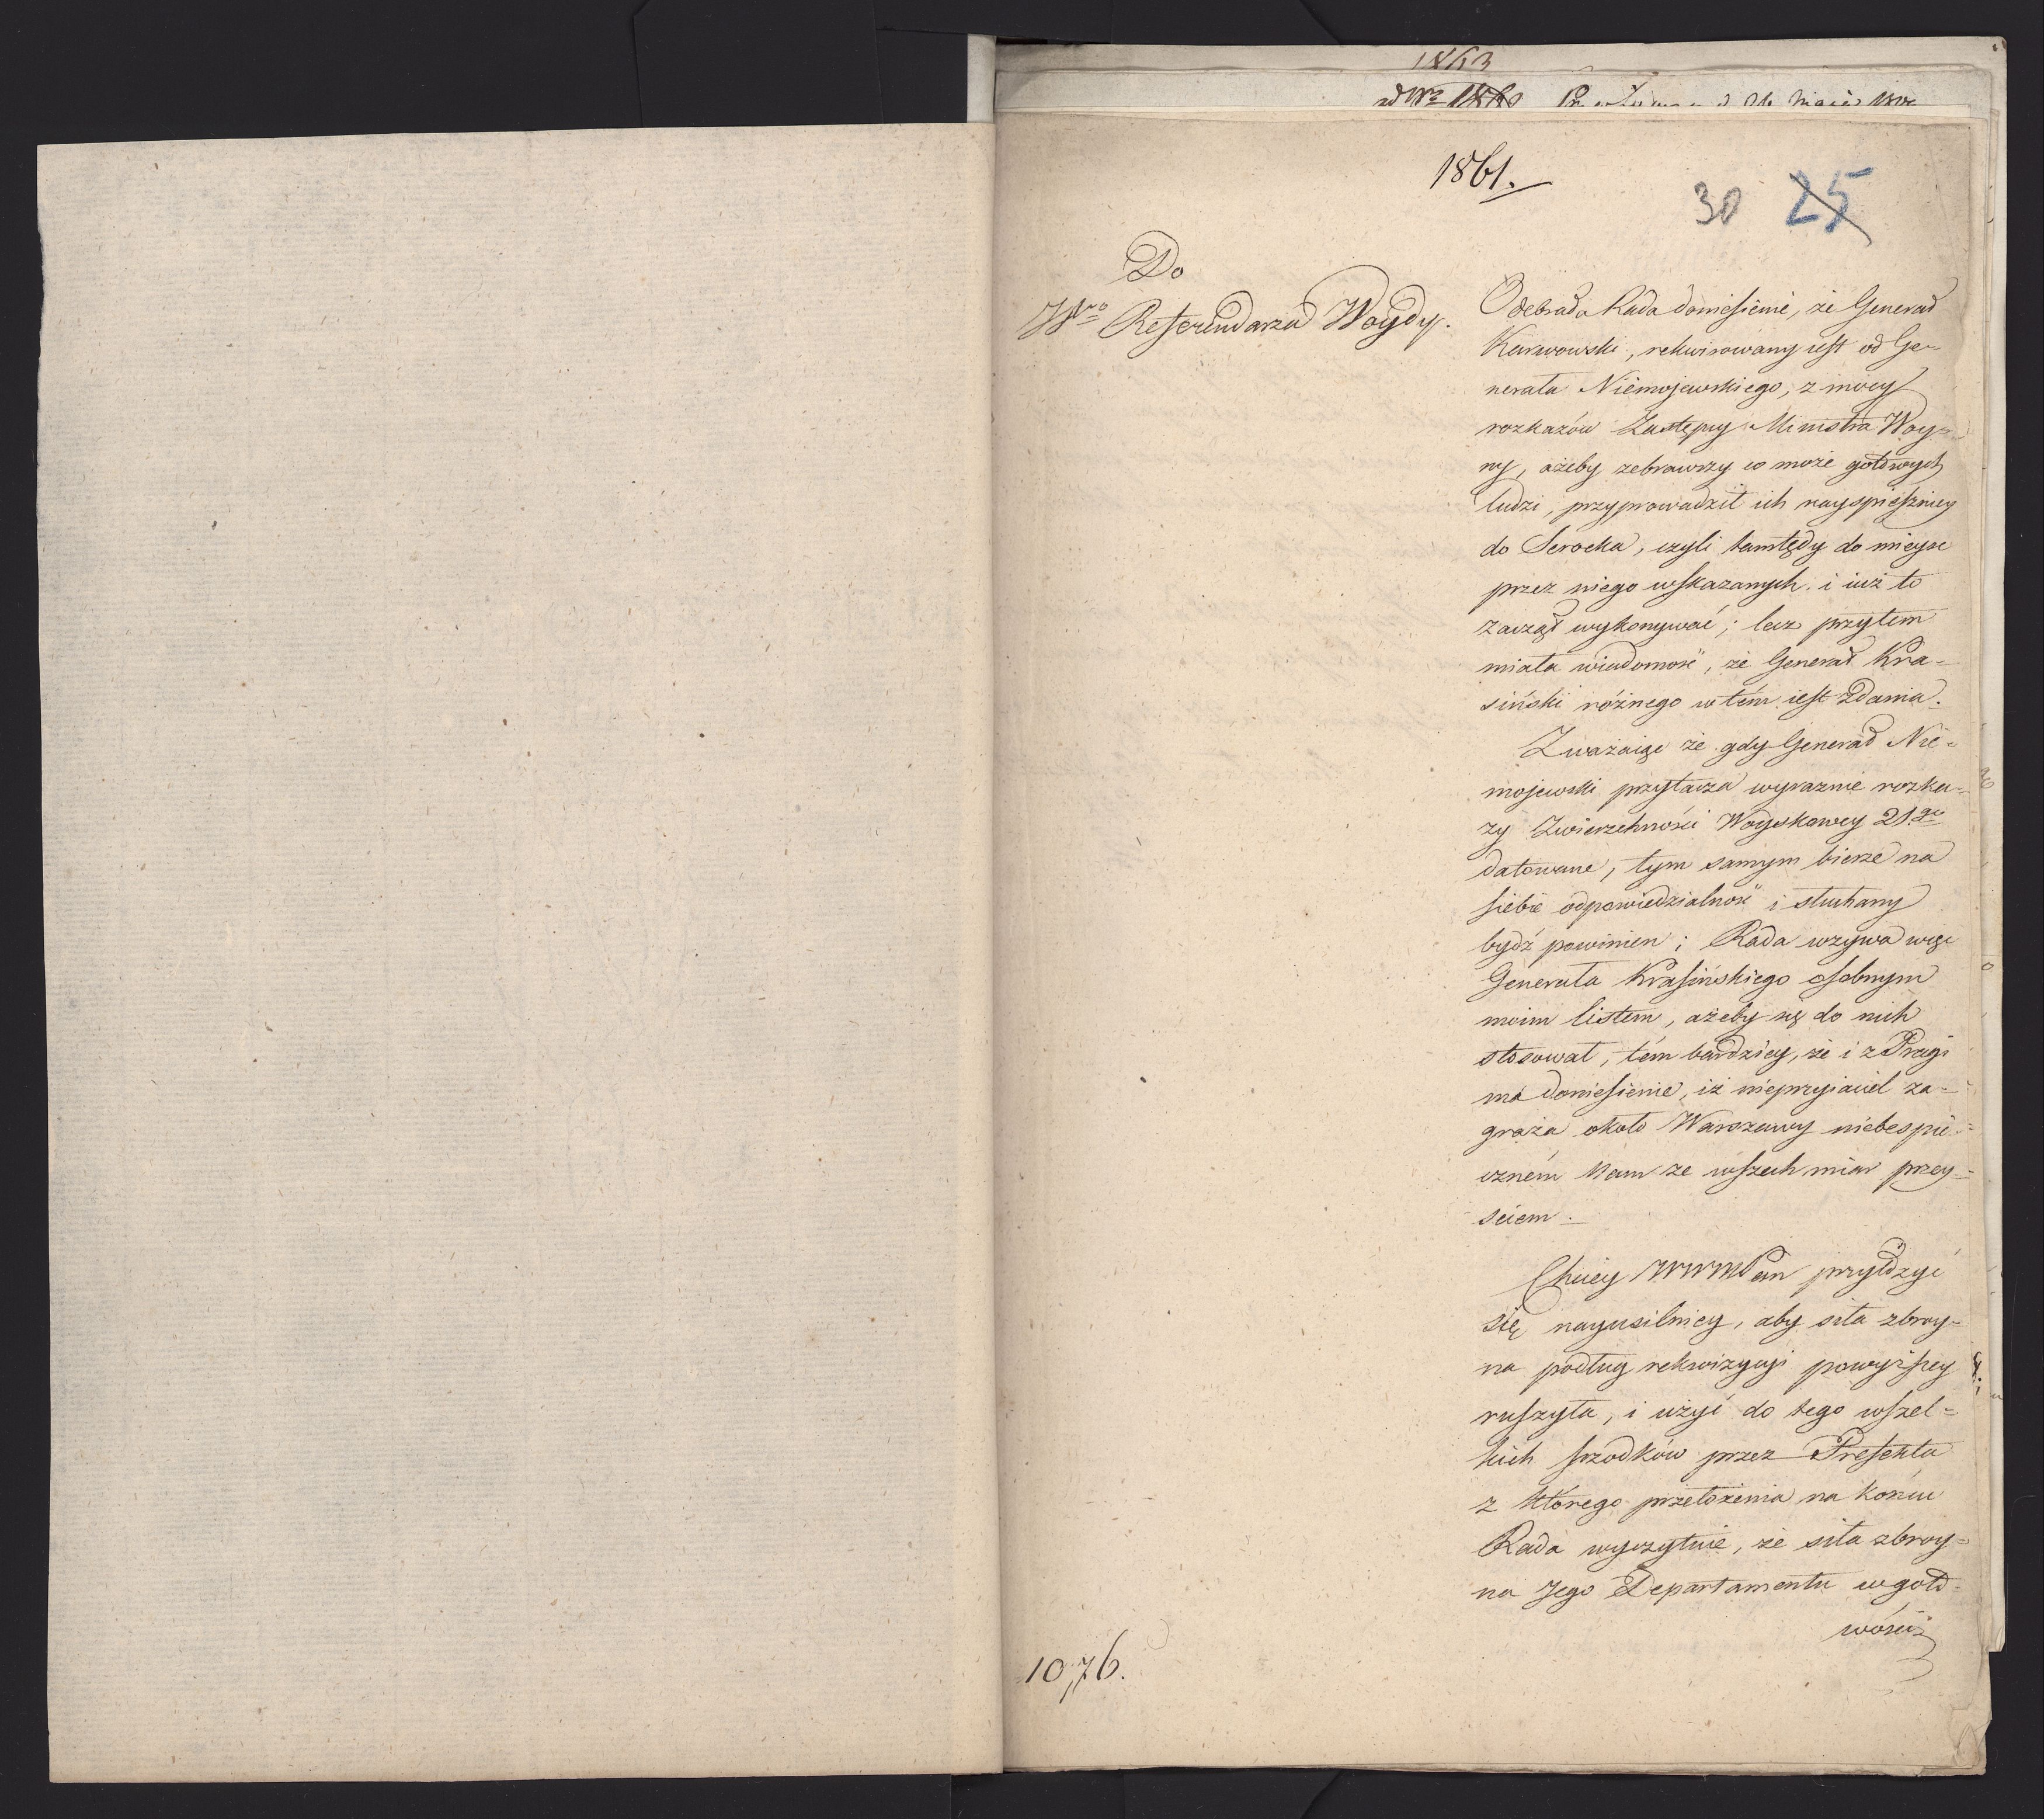 1863
ad Nro 1860
1861.
30 25
Do
JWgo Referendarza Woydy.
Odebrała Rada doniesienie, że Generał
Karwowski, rekwirowany iest od Ge-
nerała Niemojewskiego, z mocy
rozkazów Zastępcy Ministra Woy-
ny, ażeby zebrawszy co może gotowych
ludzi, przyprowadził ich nayspieszniey
do Serocka, czyli tamtędy do mieysc
przez niego wskazanych. i iuż to
zaczął wykonywać; lecz przytem
miała wiadomość, że Generał Kra-
siński różnego w tém iest zdania.
Zważaiąc że gdy Generał Nie-
mojewski przytacza wyraznie rozka-
zy Zwierzchności Woyskowey 21go
datowane, tym samym bierze na
siebie odpowiedzialność i słuchany
bydź powinien; Rada wzywa więc
Generała Krasińskiego osobnym
moim listem, ażeby się do nich
stosował, tém bardziey, że i z Pragi
ma doniesienie, iż nieprzyiaciel za-
graża około Warszawy niebespie-
czném Nam ze wszech miar przey-
sciem.
Chciey WWMPan przyłożyć
się nayusilniey, aby siła zbroy-
na podług rekwizycyi powyższey
ruszyła, i użyć do tego wszel-
kich srzodków przez Prefekta
z którego przełożenia na końcu
Rada wyczytuie, że siła zbroy-
na Jego Departamentu w goto-
wości
1076.